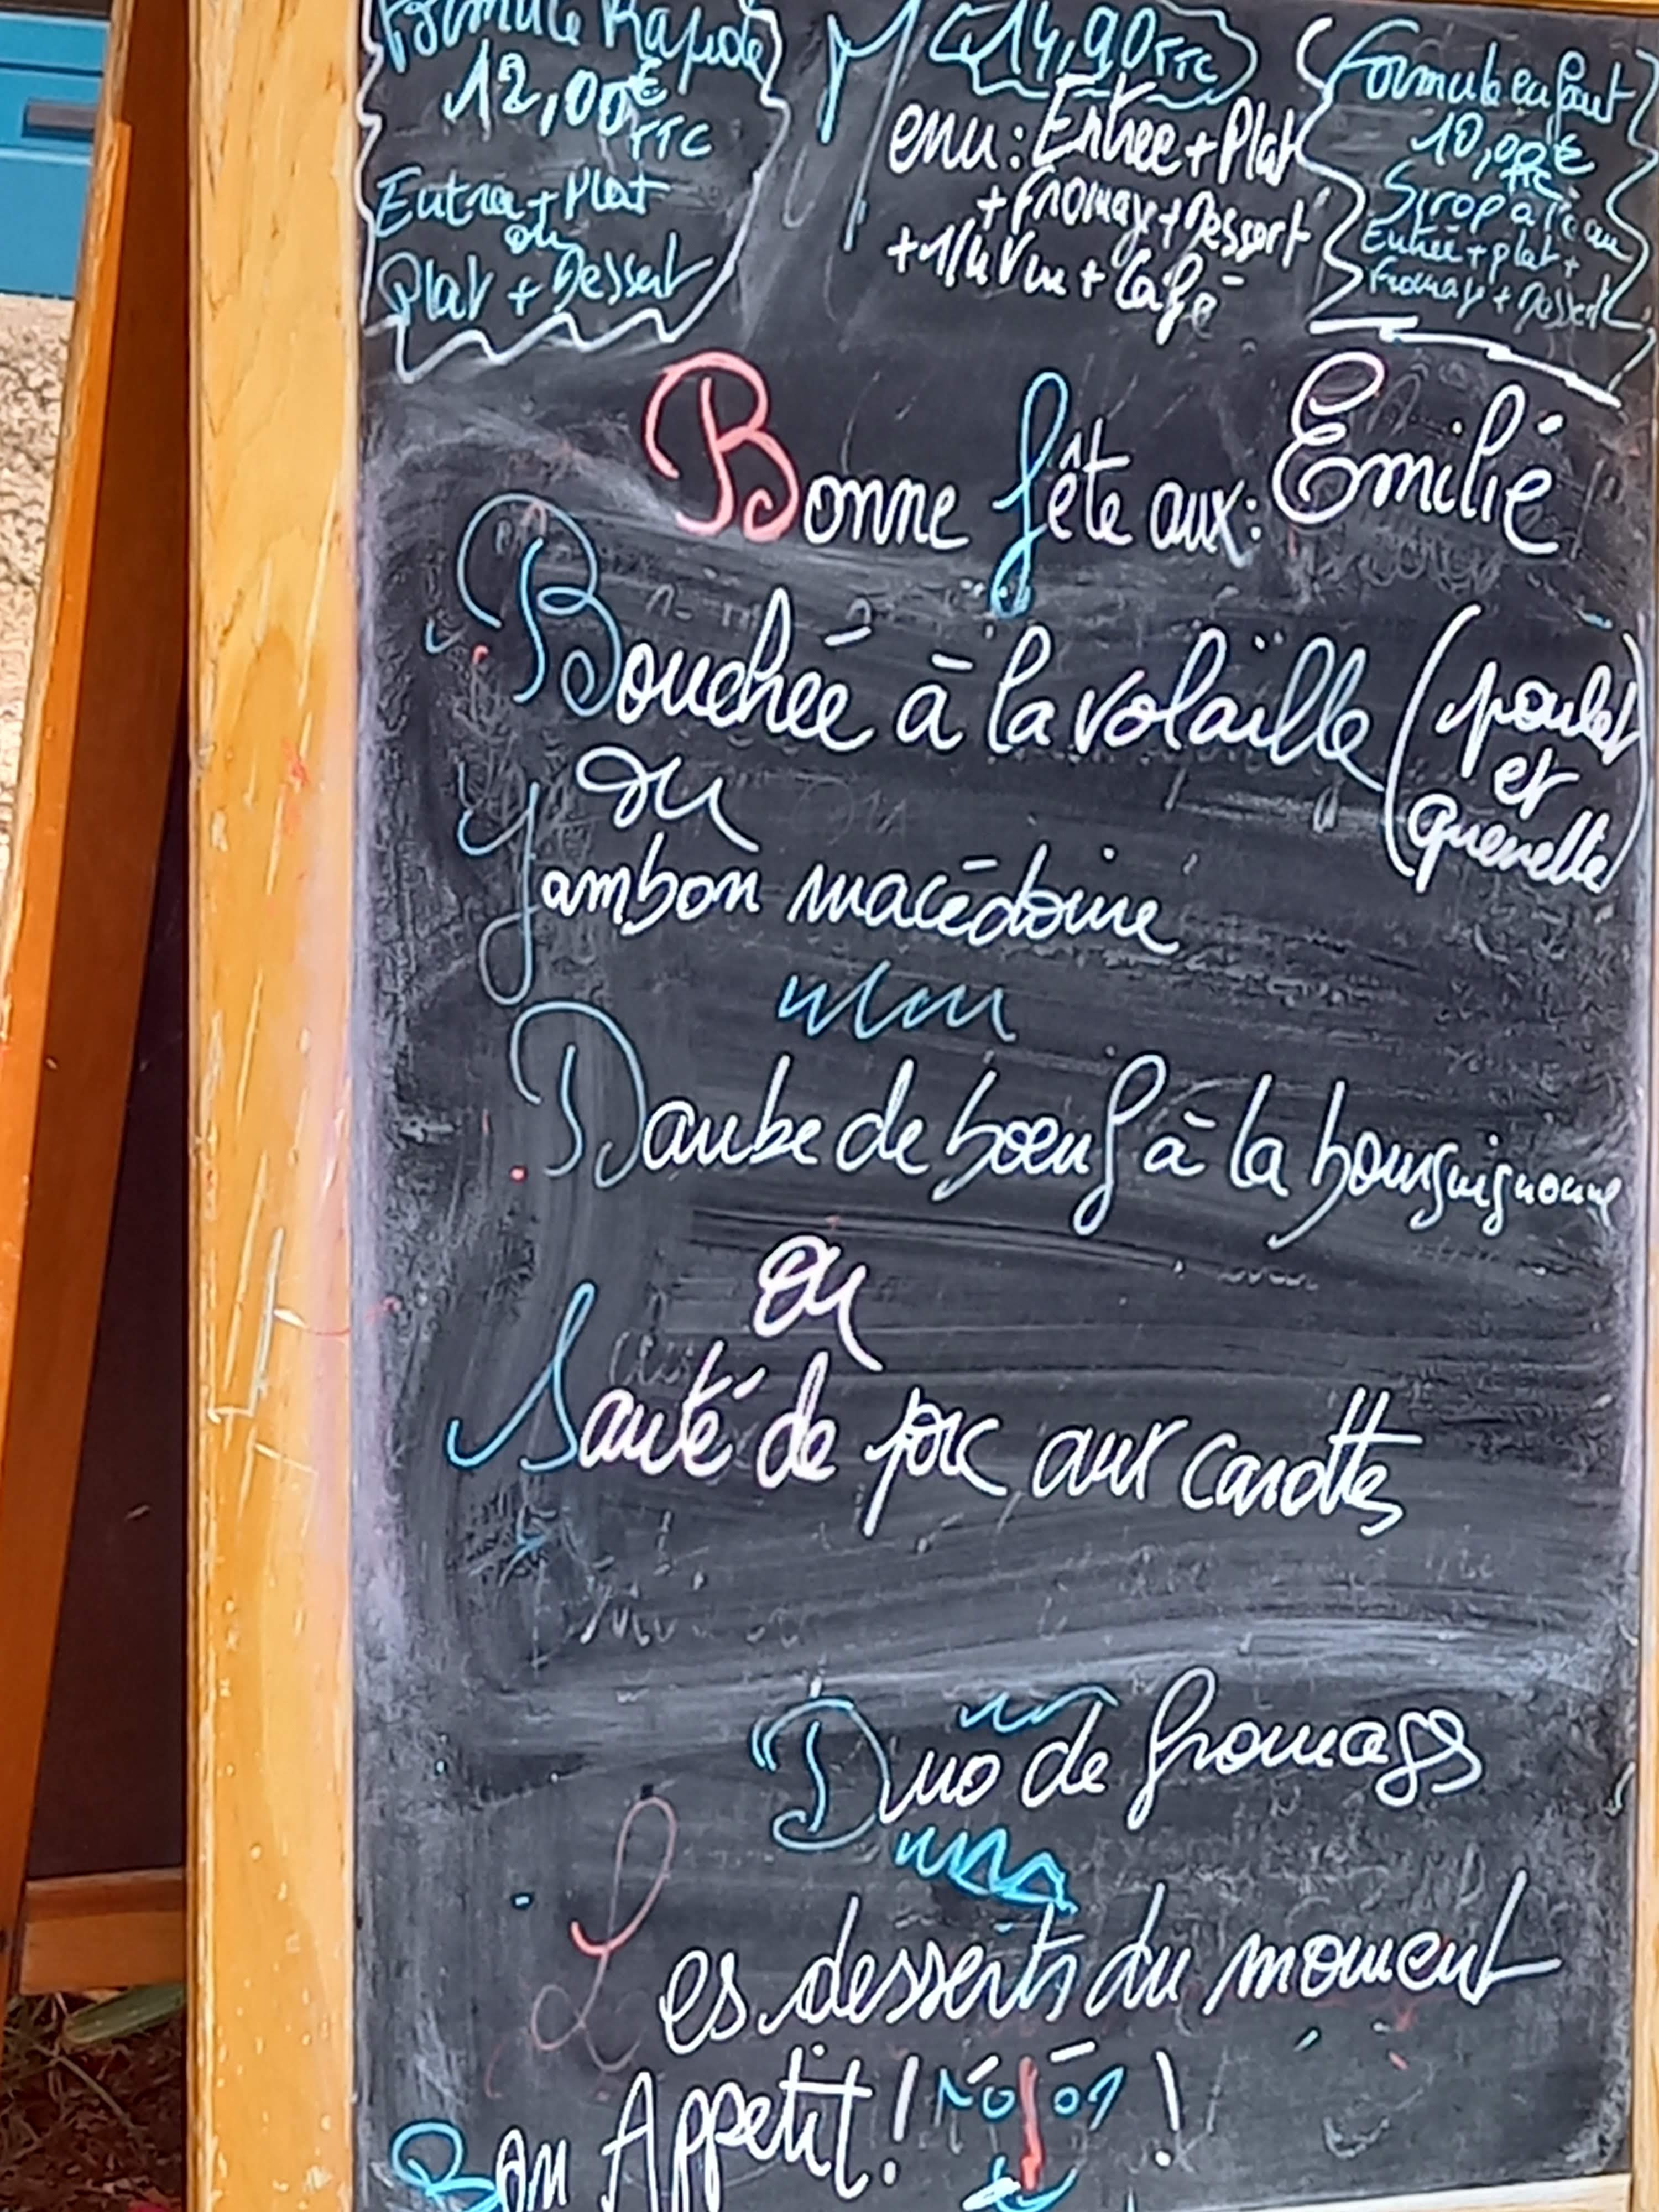 Formule Rapide
12,00€
TTC
Entrée + Plat
ou
Plat + Dessert
14,90 TTC
Menu : Entrée + Plat
+ Fromage + Dessert
+ 1/4 Vin + Café
Formule enfant
10,00€
TTC
Sirop à l'eau
Entrée + plat +
Fromage + Dessert
Bonne fête aux : Emilie
Bouchée à la volaille (poulet
et
quenelle)
ou
Jambon macédoine
Daube de boeuf à la bourguignonne
ou
Sauté de porc aux carottes
Duo de fromages
Les desserts du moment
Bon Appétit ! !